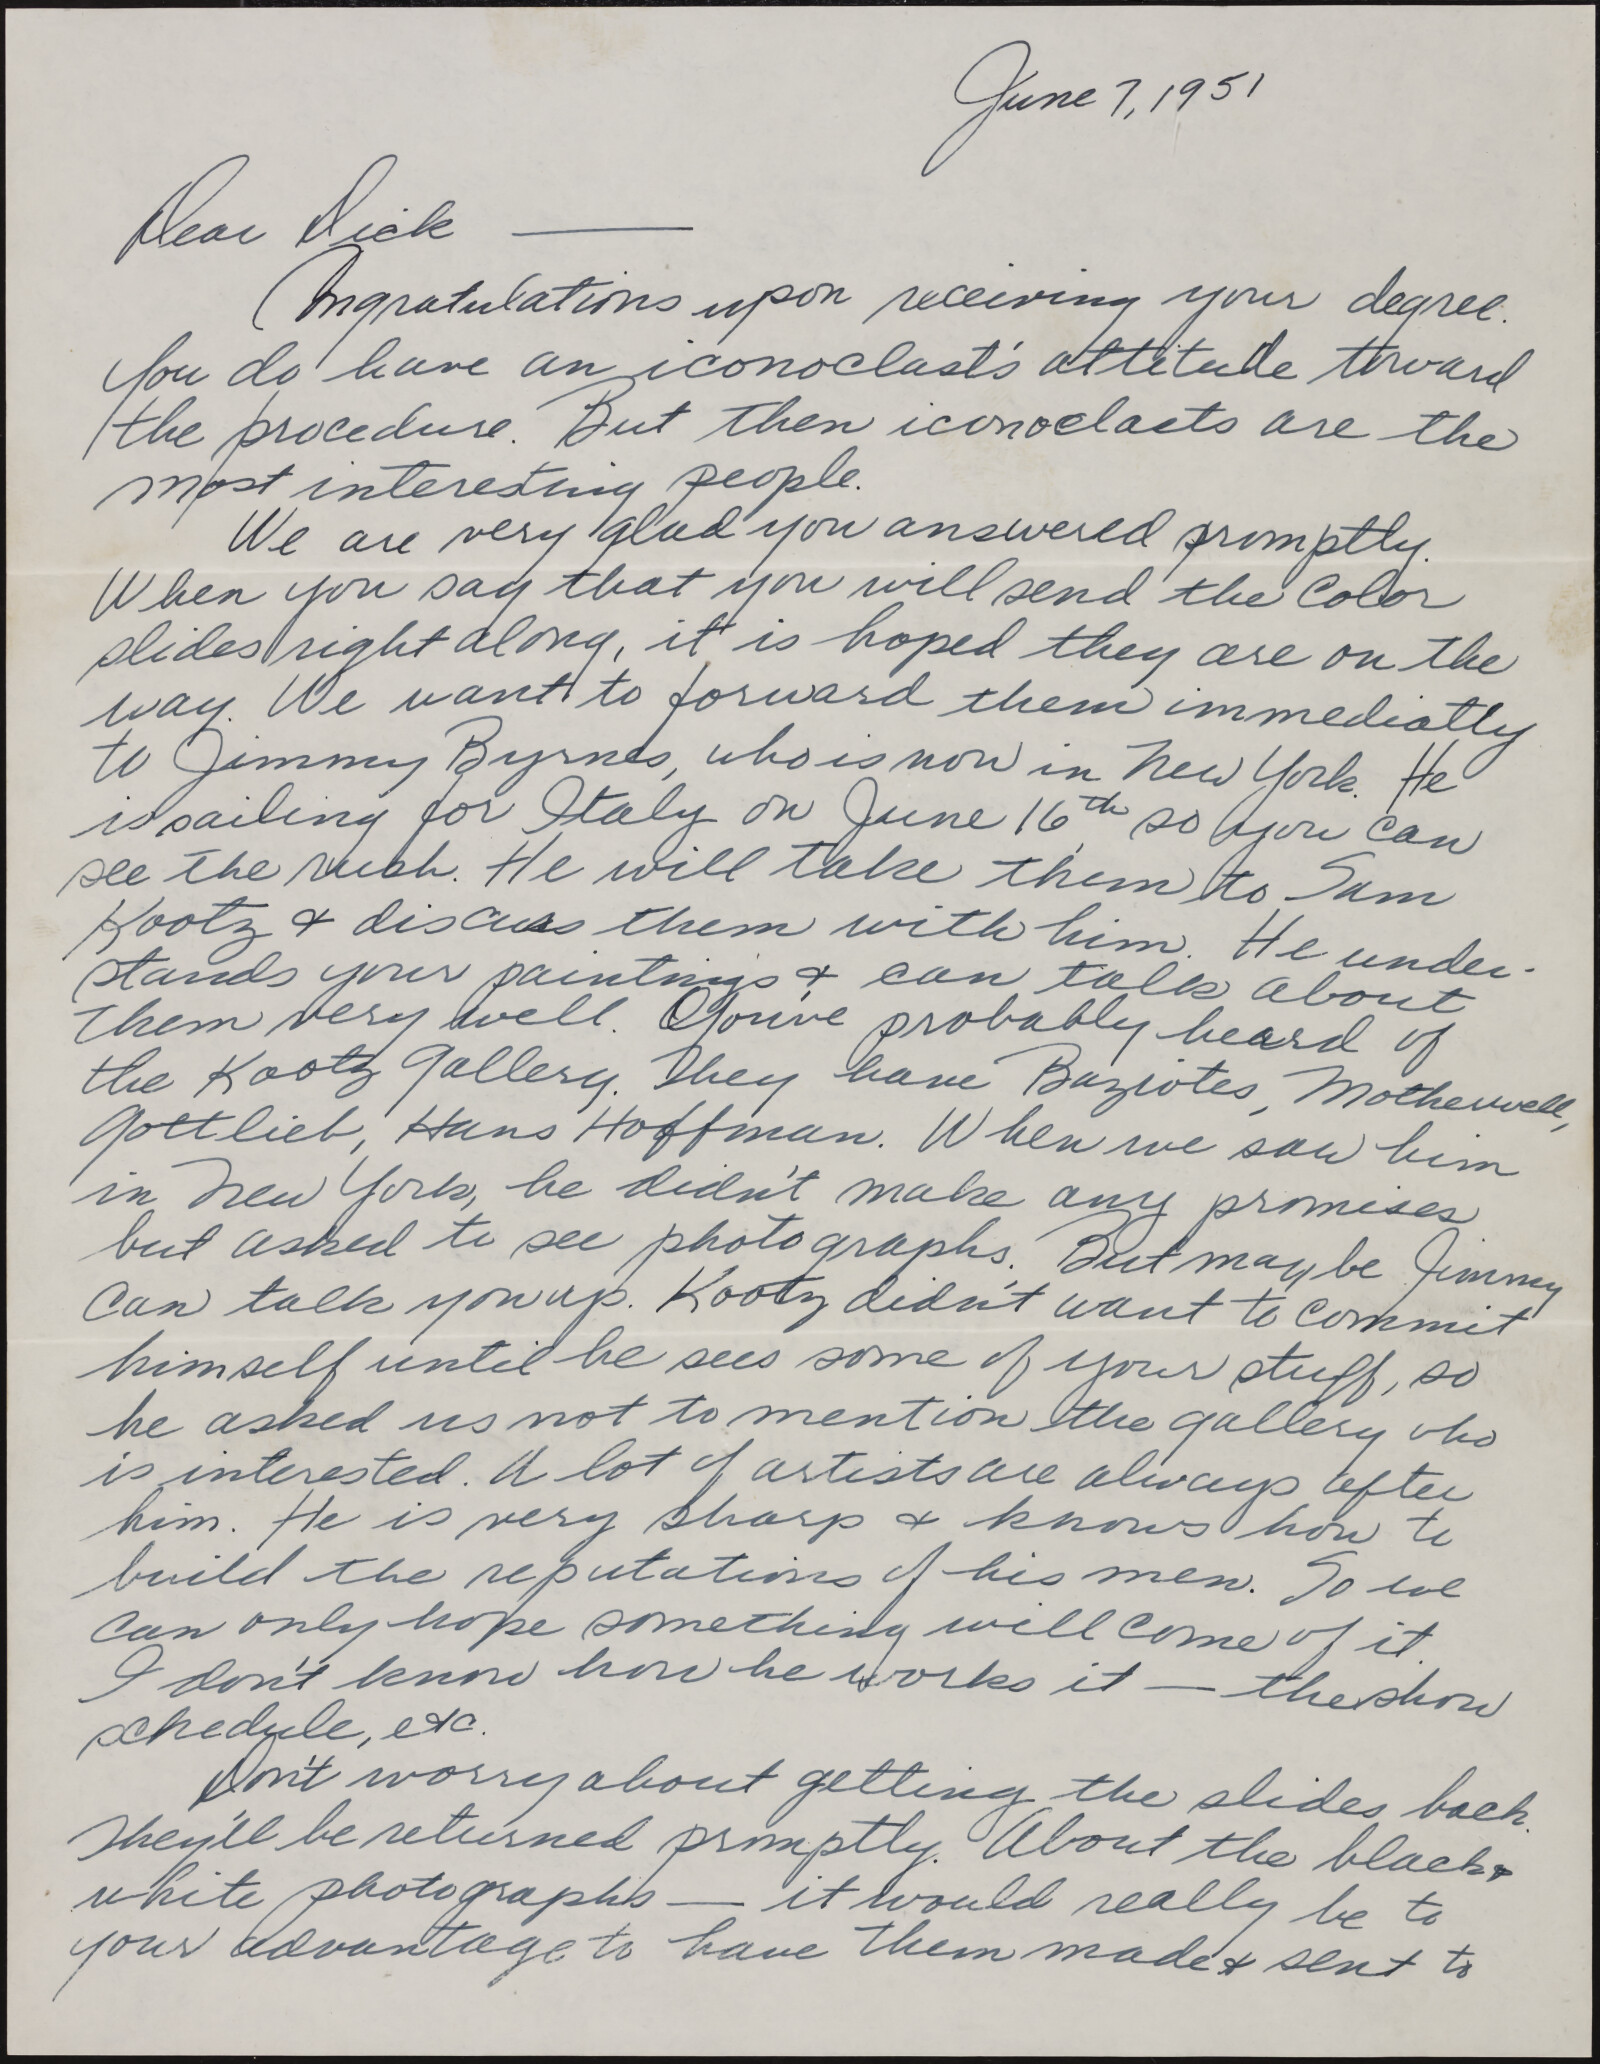 June 7, 1951
Dear Dick ——
Congratulations upon receiving your degree.
You do have an iconoclast's attitude toward
the procedure. But then iconoclasts are the
most interesting people.
We are very glad you answered promptly.
When you say that you will send the color
slides right along, it is hoped they are on the
way. We want to forward them immediatly
to Jimmy Byrnes, who is now in New York. He
is sailing for Italy on June 16th, so you can
see the rush. He will take them to Sam
Kootz & discuss them with him. He under-
stands your paintings & can talk about
them very well. You've probably heard of
the Kootz Gallery. They have Baziotes, Motherwell,
Gottlieb, Hans Hoffman. When we saw him
in New York, he didn't make any promises
but asked to see photographs. But maybe Jimmy
can talk you up. Kootz didn't want to commit
himself until he sees some of your stuff, so
he asked us not to mention the gallery who
is interested. A lot of artists are always after
him. He is very sharp & knows how to
build the reputations of his men. So we
can only hope something will come of it.
I don't know how he works it — the show
schedule, etc.
Don't worry about getting the slides back.
They'll be returned promptly. About the black &
white photographs — it would really be to
your advantage to have them made & sent to